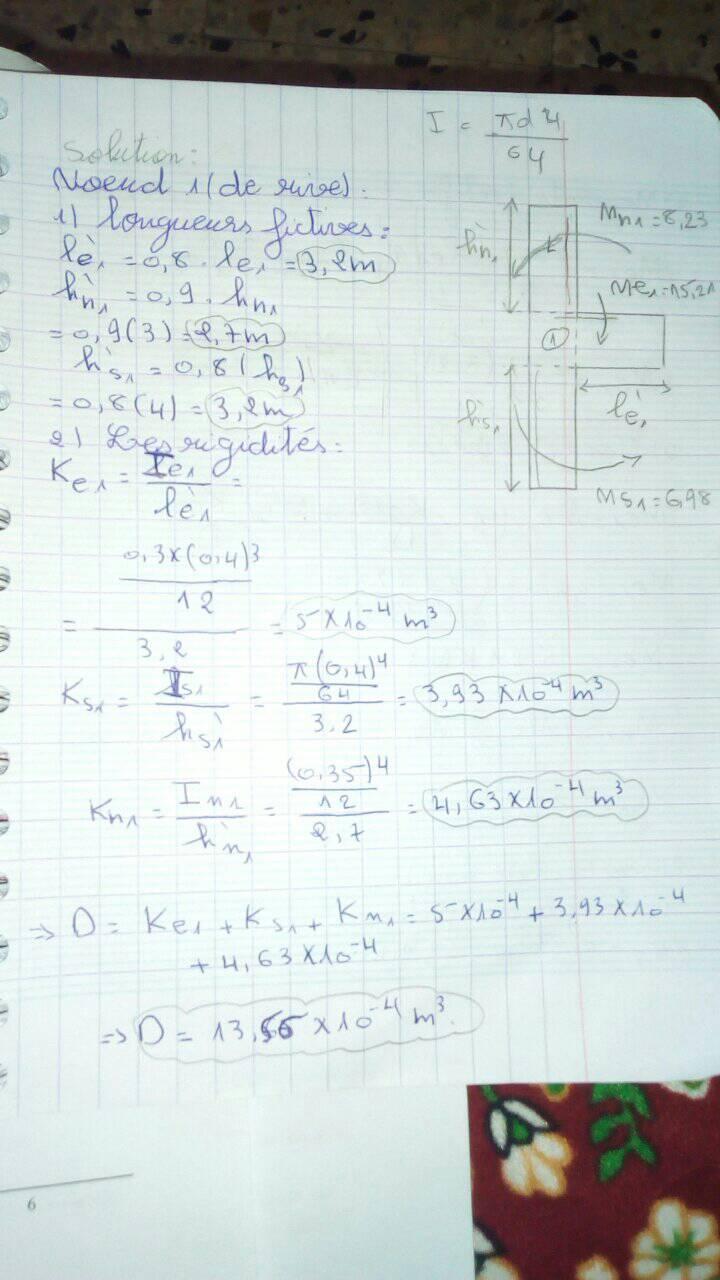 I = πd⁴/64
Solution:
Noeud 1 (de rive):
1) longueurs fictives:
l'e1 = 0,8 · le1 = 3,2m
h'n1 = 0,9 · hn1
= 0,9(3) = 2,7m
h's1 = 0,8(hs1)
= 0,8(4) = 3,2m
2) Les rigidités:
Ke1 = Ie1 / l'e1 =
= (0,3×(0,4)³ / 12) / 3,2 = 5×10⁻⁴ m³
Ks1 = Is1 / h's1 = (π(0,4)⁴ / 64) / 3.2 = 3,93 ×10⁻⁴ m³
Kn1 = In1 / h'n1 = ((0,35)⁴ / 12) / 2,7 = 4,63 ×10⁻⁴ m³
⇒ D = Ke1 + Ks1 + Kn1 = 5×10⁻⁴ + 3,93×10⁻⁴
+ 4,63×10⁻⁴
⇒ D = 13,56 ×10⁻⁴ m³.
Mn1 = 8,23
h'n1
Me1 = 15,21
1
l'e1
h's1
Ms1 = 6,98
6